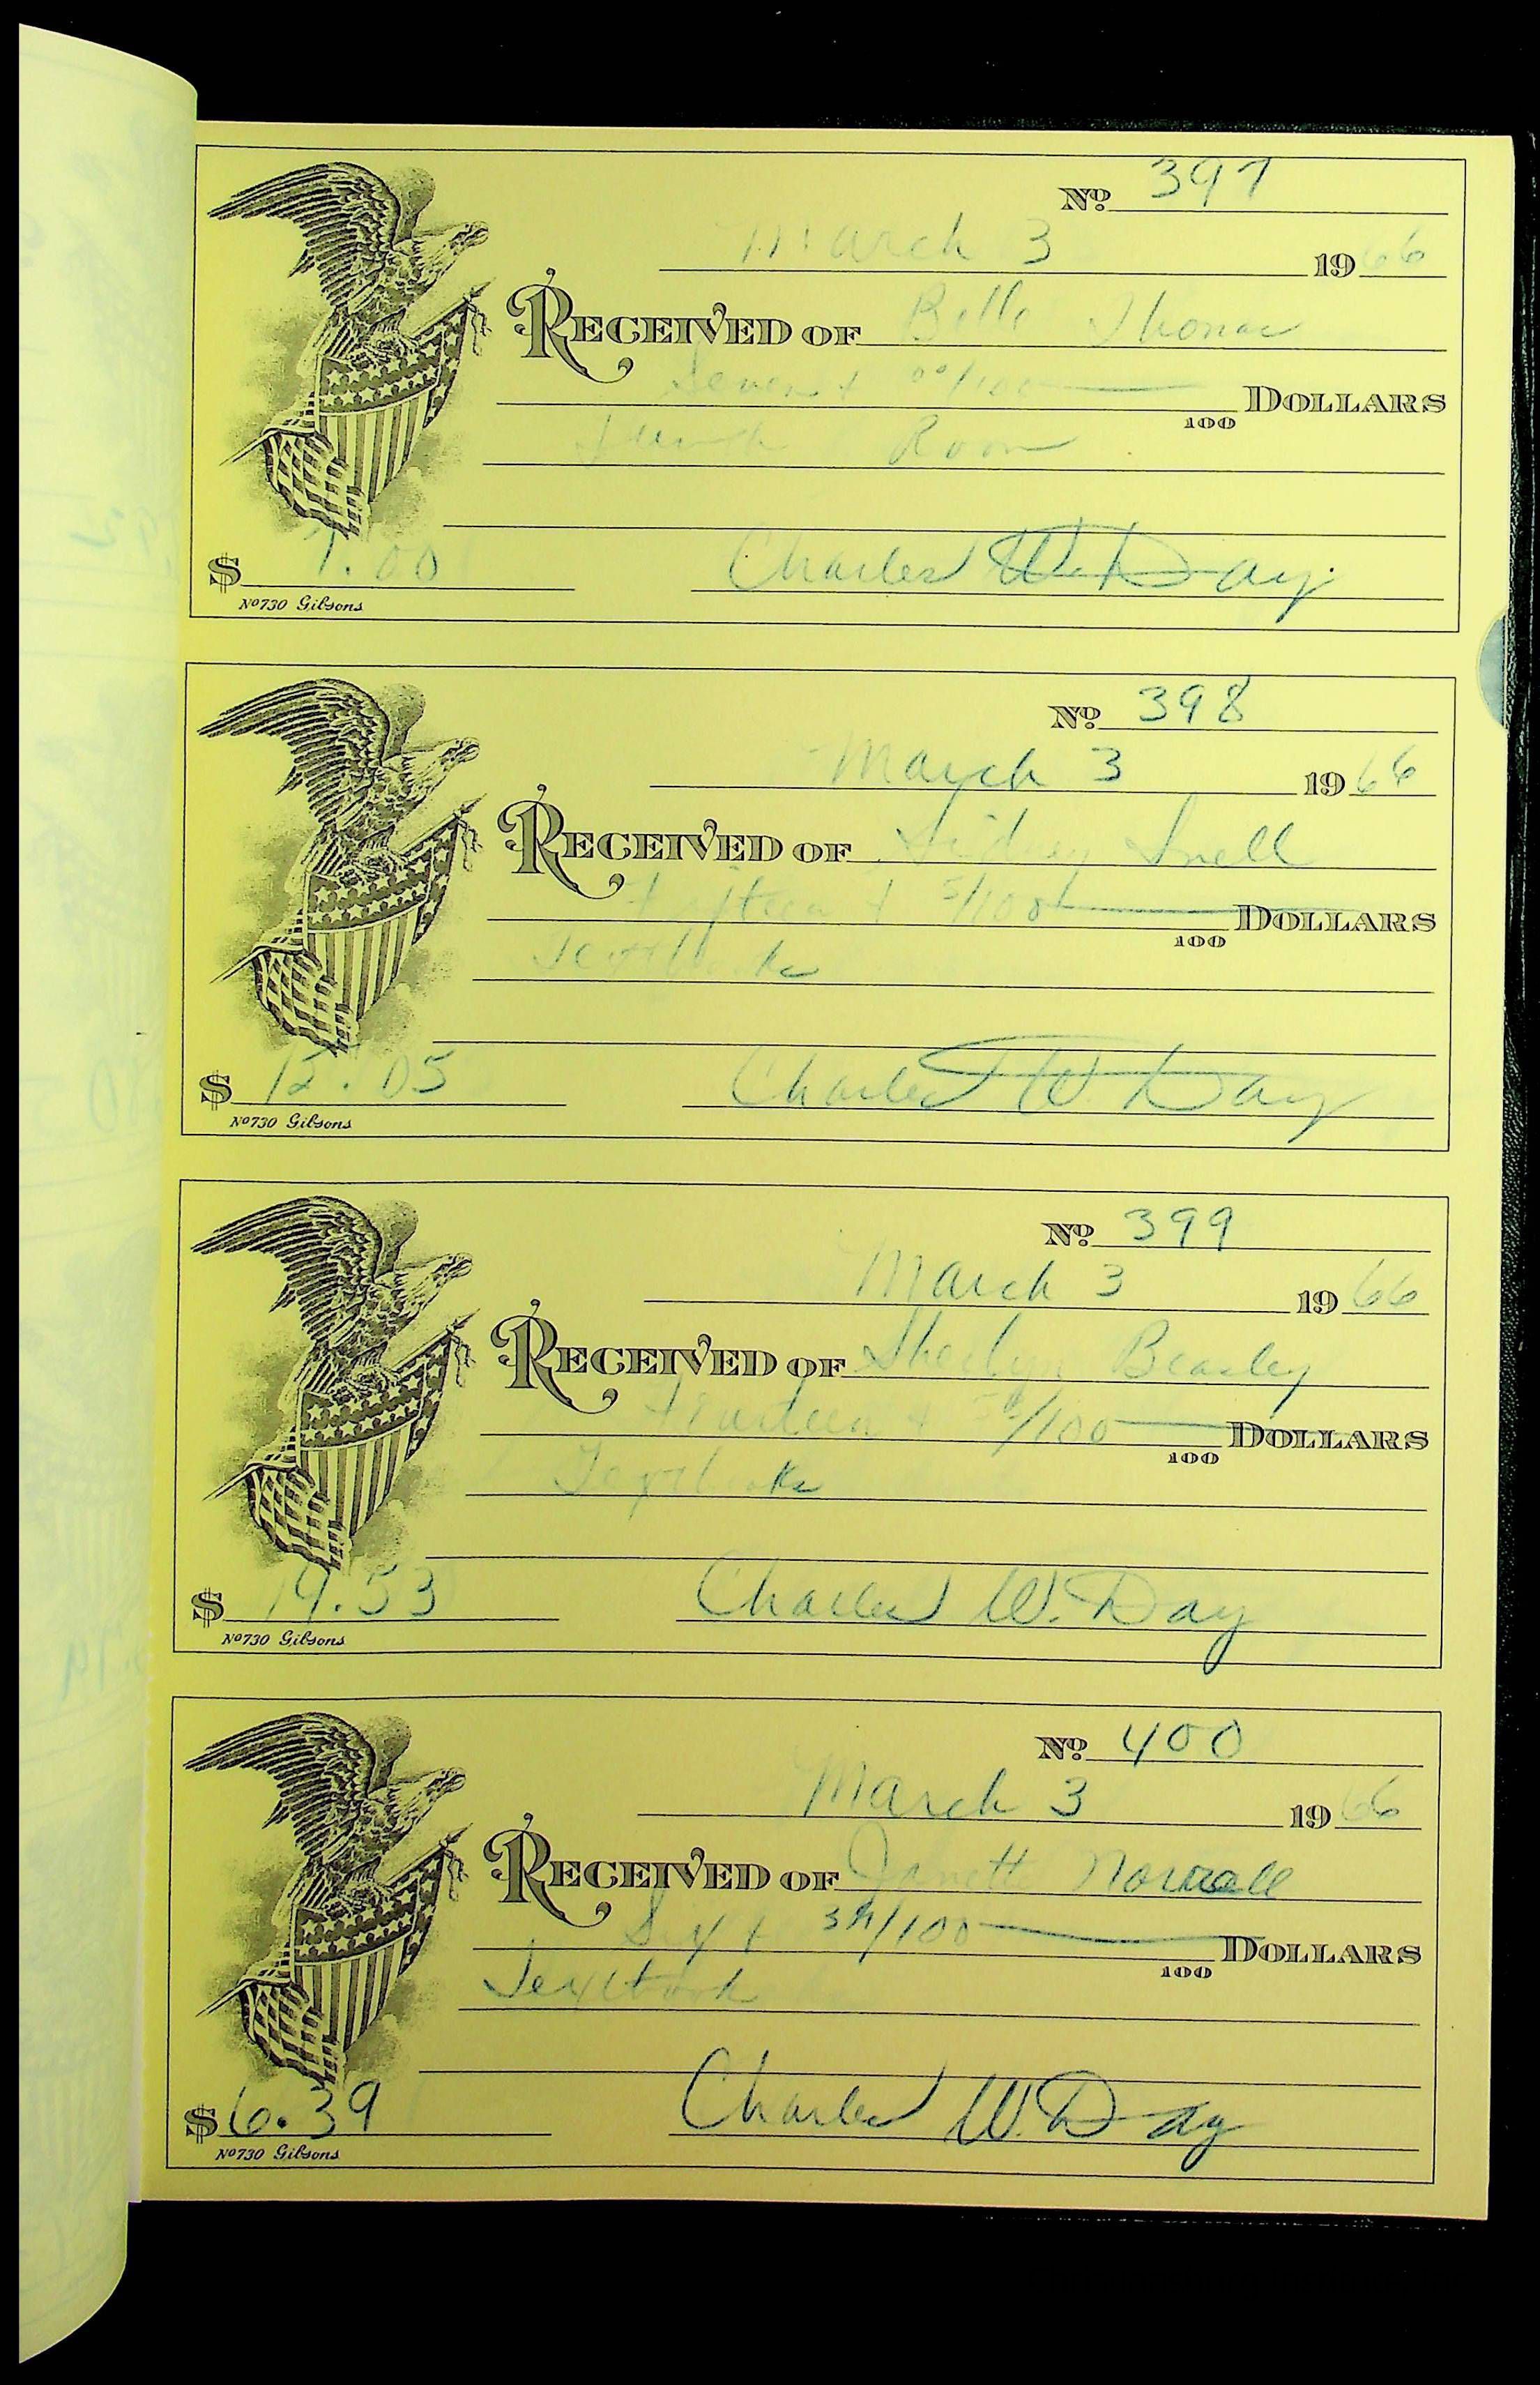 No. 397
March 3 1966
RECEIVED OF Belle Thomas
Seven + 00/100 DOLLARS
100
Lunch Room
$ 7.00 Charles W. Day
No 730 Gibsons
No. 398
March 3 1966
RECEIVED OF Sidney Snell
+ 5/100 DOLLARS
100
Textbooks
$ 05 Charles W. Day
No 730 Gibsons
No. 399
March 3 1966
RECEIVED OF Beasley
+ /100 DOLLARS
100
Textbooks
$ 53 Charles W. Day
No 730 Gibsons
No. 400
March 3 1966
RECEIVED OF Janette
Six + 39/100 DOLLARS
100
Textbook
$ 6.39 Charles W. Day
No 730 Gibsons